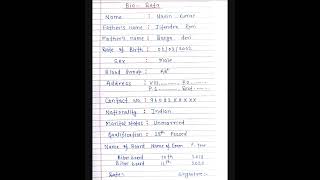 Bio - Data
Name : Navin Kumar
Father's name : Jitendra Ram
Mother's name : Ganga devi
Date of Birth : 02/03/2002
Sex : Male
Blood Group :
Address : Vill........ Po.........
P.s......... Dist.......
Contact No : 96083XXXXX
Nationality : Indian
Marital Status : Unmarried
Qualification : 12th Passed
Name of Board Name of Exam P. Year
Bihar board 10th 2018
Bihar board 12th 2020
Date: Signature:-